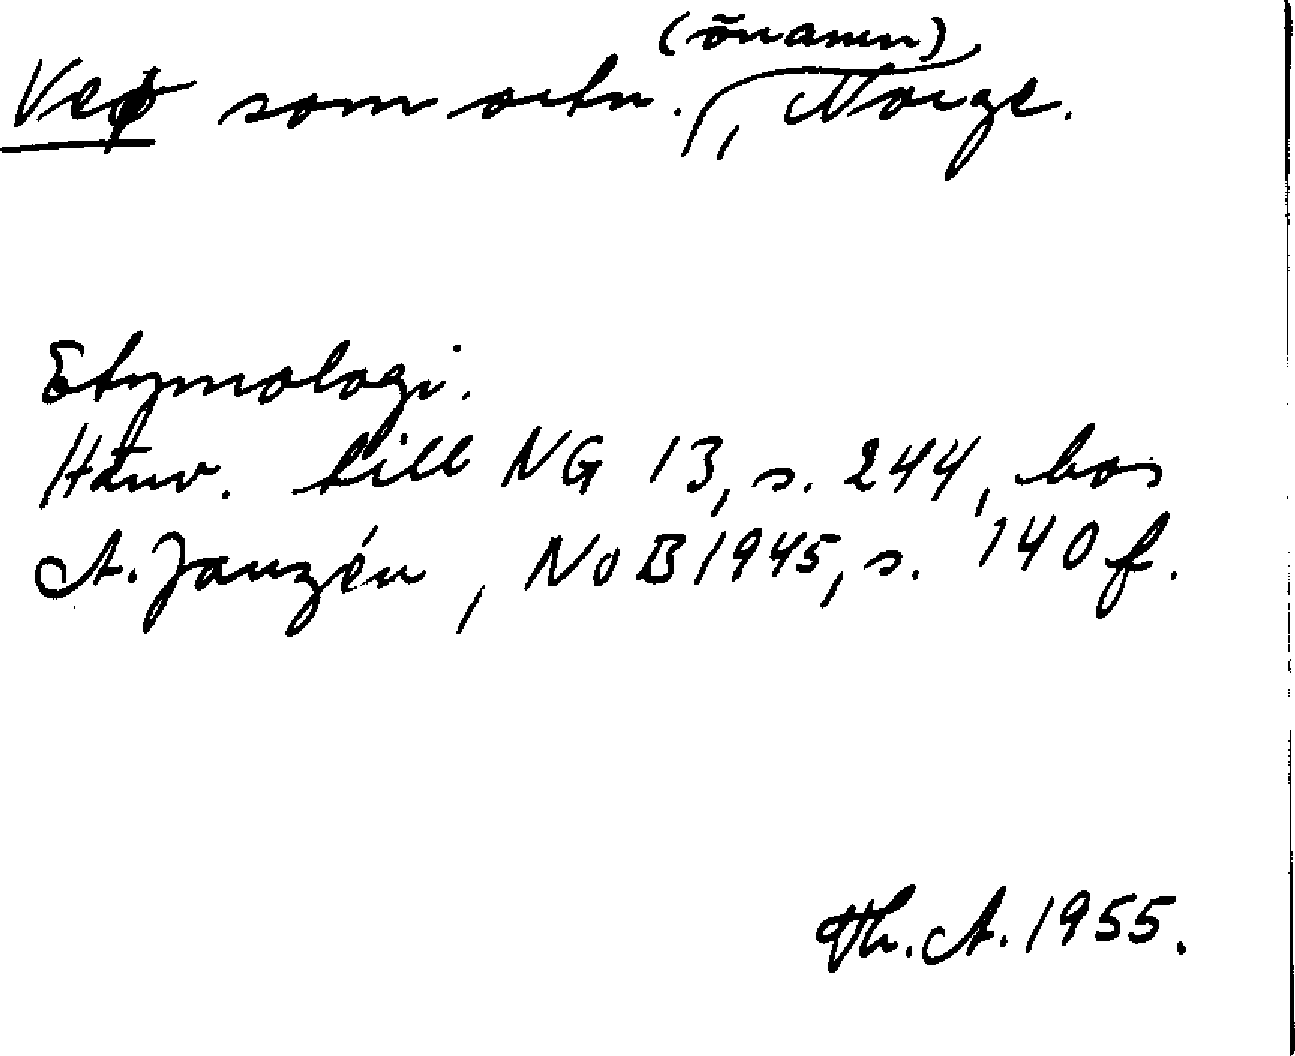 Veø som ortn. (önamn), Norge.
Etymologi.
Hänv. till NG 13, s. 244, hos
A. Janzén, NoB 1945, s. 140 f.
Th. A. 1955.